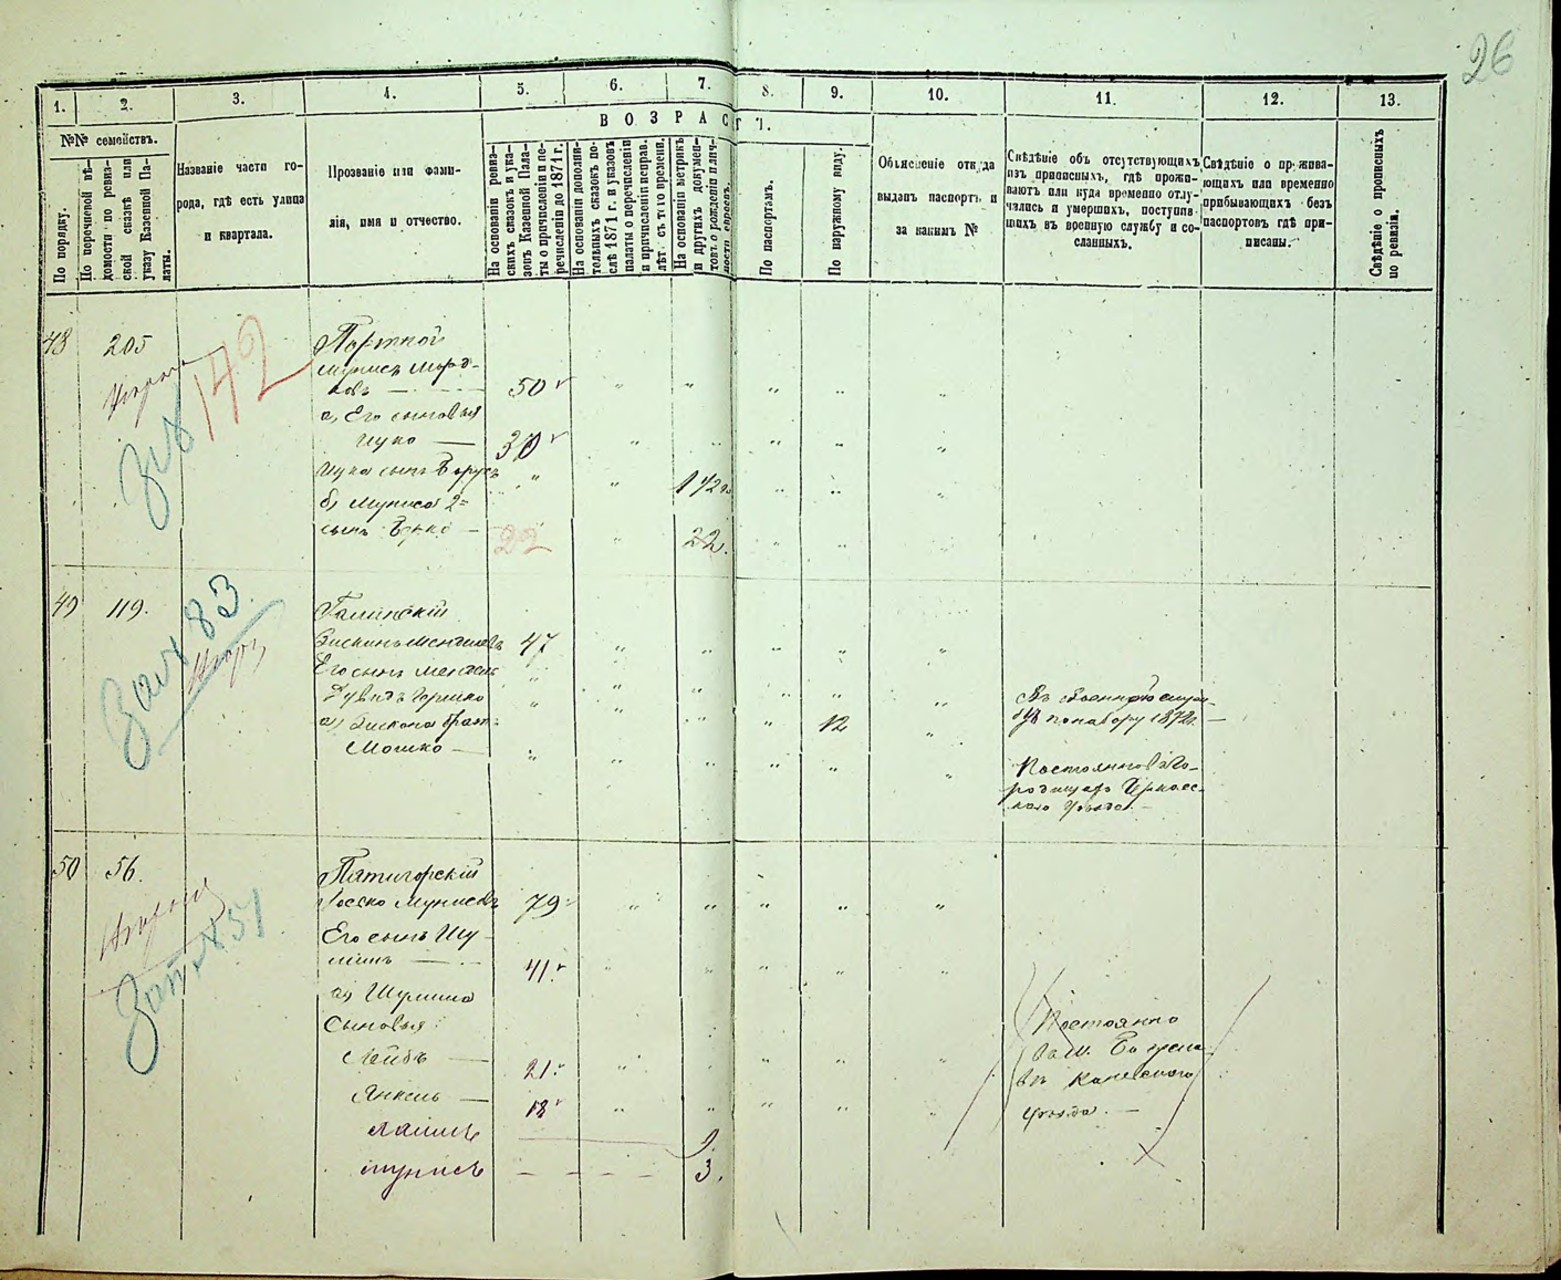 26
1. 2. 3. 4. 5. 6. 7. 8. 9. 10. 11. 12. 13.
№№ семействъ.
По порядку.
По перечневой вѣ-
домости по ревиз-
ской сказкѣ или
указу Казенной Па-
латы.
Названіе части го-
рода, гдѣ есть улица
и квартала.
Прозваніе или фами-
лія, имя и отчество.
ВОЗРАСТ
На основаніи ревиз-
скихъ сказокъ и ука-
зовъ Казенной Пала-
ты о причисленіи и пе-
речисленіи до 1871 г.
На основаніи дополни-
тельныхъ сказокъ по-
слѣ 1871 г. и указовъ
палаты о перечисленіи
и причисленіи неправ.
лѣт. съ того времени.
На основаніи метрикъ
и другихъ докумен-
товъ о рожденіи лич-
ности евреевъ.
По паспортамъ.
По наружному виду.
Объясненіе откуда
выданъ паспортъ и
за какимъ №
Свѣдѣніе объ отсутствующихъ
изъ приписныхъ, гдѣ прожи-
ваютъ или куда временно отлу-
чились и умершихъ, поступив-
шихъ въ военную службу и со-
сланныхъ.
Свѣдѣніе о прожива-
ющихъ или временно
прибывающихъ безъ
паспортовъ гдѣ при-
писаны.
Свѣдѣніе о прописныхъ
по ревизіи.
48 205 142
Портной
Мунисъ Морд-
ковъ — 50
а) Его сыновья
Ицко — 30
Ицка сынъ Борухъ 1 1/2
б) Муниса 2=
сынъ Берко — 22 22.
49 119. 83.
Галинскій
47
Его сынъ Мендель
Дувидъ Гершко
брат:
Мошко — 12
по набору 1872г. —
Постоянно въ Го-
родищахъ Черкас-
скаго уѣзда. —
50 56. 51
Пятигорскій
Иосько Мунисовъ 79
Его сынъ Шу-
лимъ — 41.
а) Шулима
Сыновья:
Лейбъ — 21.
Янкель — 18
9
Мунисъ — 3.
Постоянно
въ м.
Каневскаго
уѣзда. —